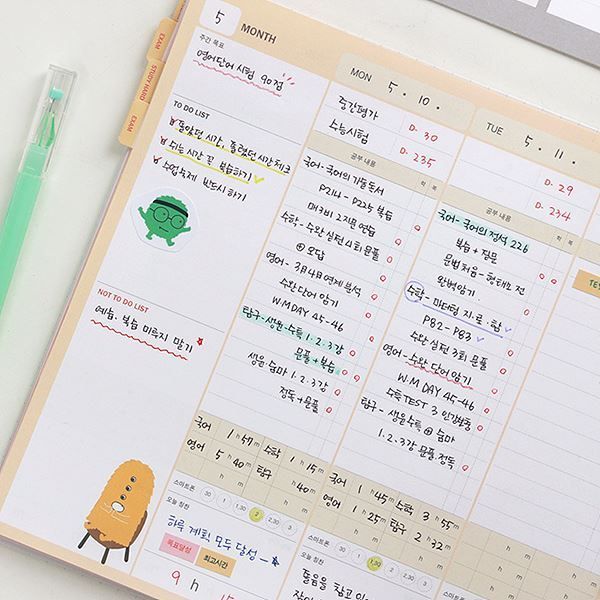 5 MONTH
주간 목표
영어단어 시험 90점
TO DO LIST
졸았던 시간, 흘렸던 시간 체크
쉬는 시간 꼭 복습하기
수업숙제 반드시 하기
NOT TO DO LIST
예습, 복습 미루지 말기
EXAM
STUDY HARD
EXAM
MON 5. 10.
중간평가 D-30
수능시험 D-235
공부 내용
국어-국어의 기술 독서
P214-P225 복습
매3비 2지문 연습
수학-수완 실전 4회 문풀
⊕ 오답
영어-3월 4일 연계 분석
수완 단어 암기
W.M DAY 45-46
탐구-생윤.수특 1.2.3강
문풀+복습
생윤.숨마 1.2.3강
정독+문풀
국어 1h 57m 수학 1h 15m
영어 5h 40m 탐구 h 40m
h m h m
스마트폰 30 1 1.30 2 2.30 3
오늘 칭찬
하루 계획 모두 달성
목표달성
최고시간
9 h 15
TUE 5. 11.
D-29
D-234
공부 내용
국어-국어의 정석 226
복습+질문
문법 처음-형태소 전
완벽암기
수학-마더텅 지.로.함
P82-P83
수완 실전 3회 문풀
영어-수완 단어 암기
W.M DAY 45-46
수특 TEST 3 인강 활용
탐구-생윤수특 ⊕ 숨마
1.2.3강 문풀.정독
국어 1h 45m 수학 3h 55m
영어 1h 25m 탐구 2h 32m
h m h m
스마트폰 30 1 1.30 2 2.30 3
오늘 칭찬
졸음을 참고